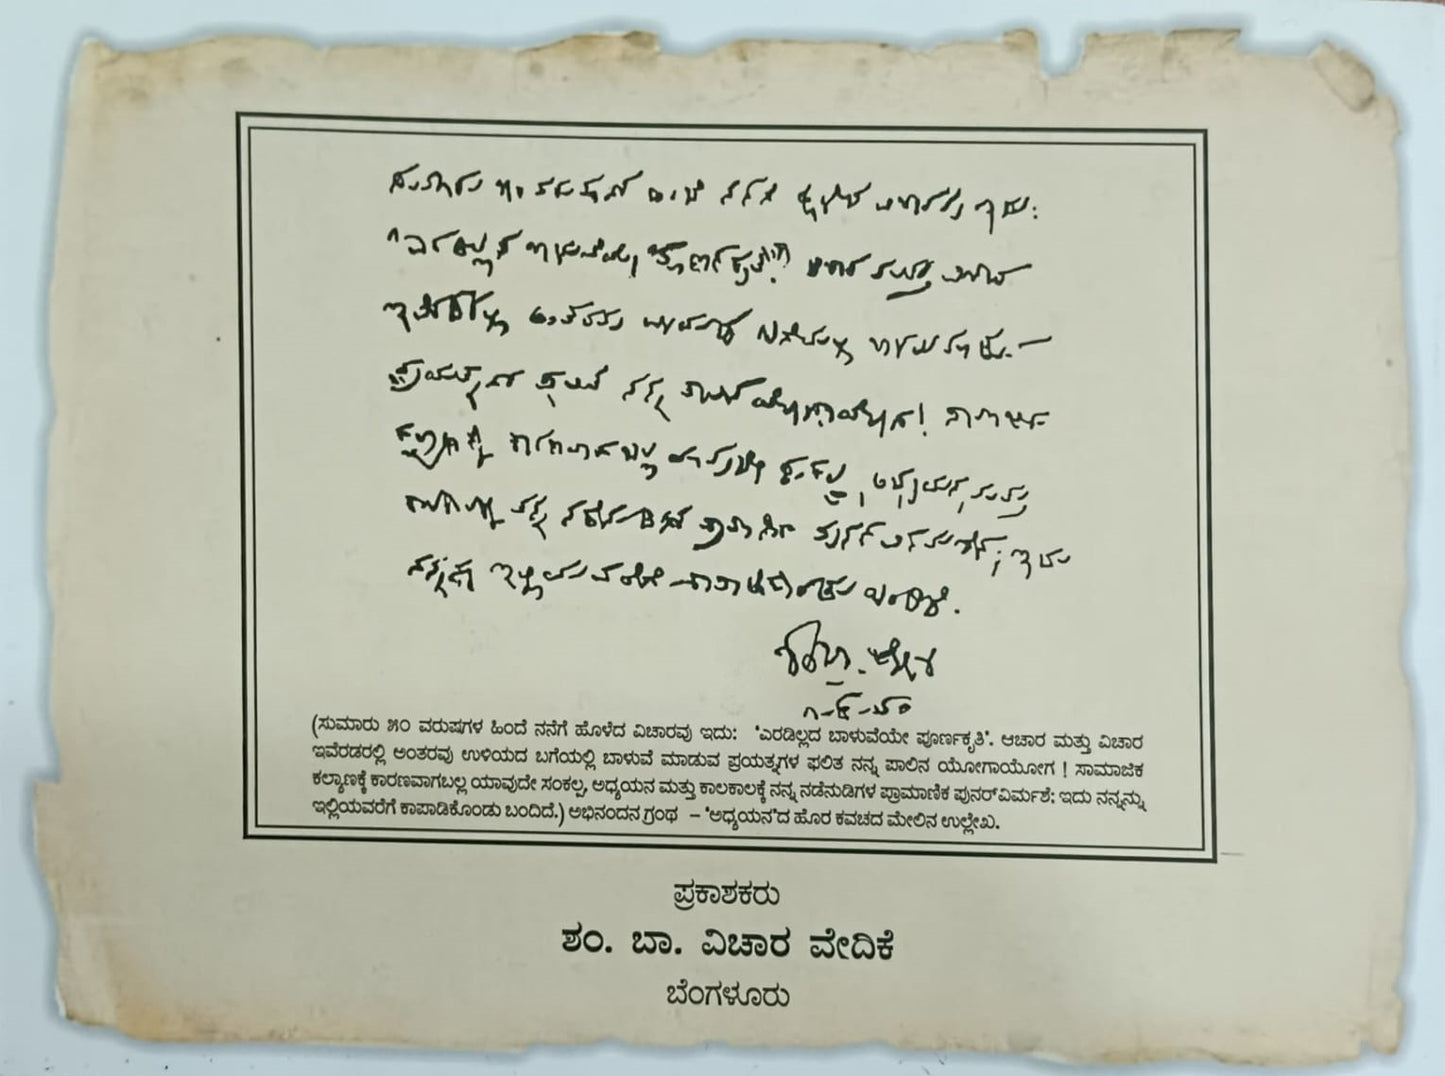 ಸುಮಾರು ೫೦ ವರುಷಗಳ ಹಿಂದೆ ನನಗೆ ಹೊಳೆದ ವಿಚಾರವು ಇದು:
"ಎರಡಿಲ್ಲದ ಬಾಳುವೆಯೇ ಪೂರ್ಣಕೃತಿ". ಆಚಾರ ಮತ್ತು ವಿಚಾರ
ಇವೆರಡರಲ್ಲಿ ಅಂತರವು ಉಳಿಯದ ಬಗೆಯಲ್ಲಿ ಬಾಳುವೆ ಮಾಡುವ
ಪ್ರಯತ್ನಗಳ ಫಲಿತ ನನ್ನ ಪಾಲಿನ ಯೋಗಾಯೋಗ! ಸಾಮಾಜಿಕ
ಕಲ್ಯಾಣಕ್ಕೆ ಕಾರಣವಾಗಬಲ್ಲ ಯಾವುದೇ ಸಂಕಲ್ಪ, ಅಧ್ಯಯನ ಮತ್ತು
ಕಾಲಕಾಲಕ್ಕೆ ನನ್ನ ನಡೆನುಡಿಗಳ ಪ್ರಾಮಾಣಿಕ ಪುನರ್ವಿಮರ್ಶೆ; ಇದು
ನನ್ನನ್ನು ಇಲ್ಲಿಯವರೆಗೆ ಕಾಪಾಡಿಕೊಂಡು ಬಂದಿದೆ.
(ಸುಮಾರು ೫೦ ವರುಷಗಳ ಹಿಂದೆ ನನಗೆ ಹೊಳೆದ ವಿಚಾರವು ಇದು: 'ಎರಡಿಲ್ಲದ ಬಾಳುವೆಯೇ ಪೂರ್ಣಕೃತಿ'. ಆಚಾರ ಮತ್ತು ವಿಚಾರ
ಇವೆರಡರಲ್ಲಿ ಅಂತರವು ಉಳಿಯದ ಬಗೆಯಲ್ಲಿ ಬಾಳುವೆ ಮಾಡುವ ಪ್ರಯತ್ನಗಳ ಫಲಿತ ನನ್ನ ಪಾಲಿನ ಯೋಗಾಯೋಗ ! ಸಾಮಾಜಿಕ
ಕಲ್ಯಾಣಕ್ಕೆ ಕಾರಣವಾಗಬಲ್ಲ ಯಾವುದೇ ಸಂಕಲ್ಪ, ಅಧ್ಯಯನ ಮತ್ತು ಕಾಲಕಾಲಕ್ಕೆ ನನ್ನ ನಡೆನುಡಿಗಳ ಪ್ರಾಮಾಣಿಕ ಪುನರ್‌ವಿರ್ಮಶೆ; ಇದು ನನ್ನನ್ನು
ಇಲ್ಲಿಯವರೆಗೆ ಕಾಪಾಡಿಕೊಂಡು ಬಂದಿದೆ.) ಅಭಿನಂದನ ಗ್ರಂಥ – 'ಅಧ್ಯಯನ'ದ ಹೊರ ಕವಚದ ಮೇಲಿನ ಉಲ್ಲೇಖ.
ಪ್ರಕಾಶಕರು
ಶಂ. ಬಾ. ವಿಚಾರ ವೇದಿಕೆ
ಬೆಂಗಳೂರು